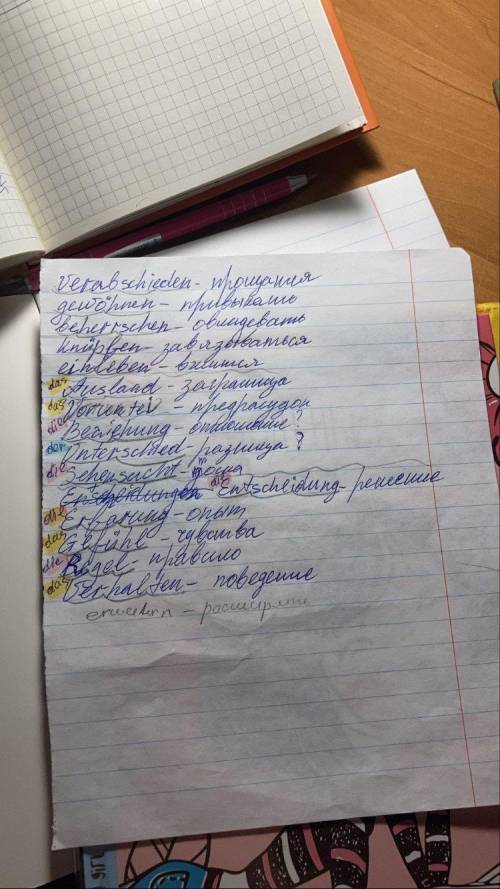 verabschieden - прощатся
gewöhnen - привыкать
beherrschen - овладевать
knüpfen - завязываться
einleben - вжится
das Ausland - заграница
das Vorurteil - предрассудок
die Beziehung - отношение?
der Unterschied - разница?
die Sehensucht - тоска
die Entscheidung - решение
die Erfarung - опыт
das Gefühl - чувства
die Regel - правило
das Verhalten - поведение
erweitern - расширять